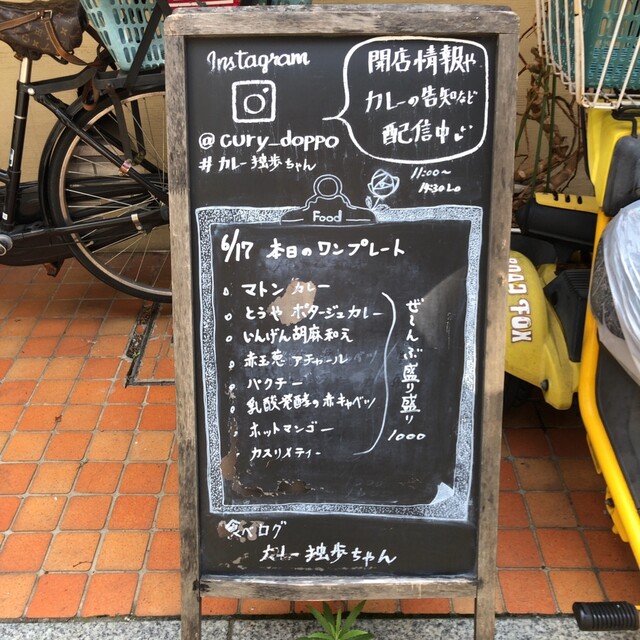 Instagram
開店情報や
カレーの告知など
配信中
@cury_doppo
#カレー独歩ちゃん
11:00〜
14:30 Lo
Food
6/17 本日のワンプレート
マトンカレー
とうや ポタージュカレー
いんげん胡麻和え
赤玉葱 アチャール
パクチー
乳酸発酵の赤キャベツ
ホットマンゴー
カスリメティー
ぜ〜んぶ盛り盛り
1000
食べログ
カレー独歩ちゃん
FOX